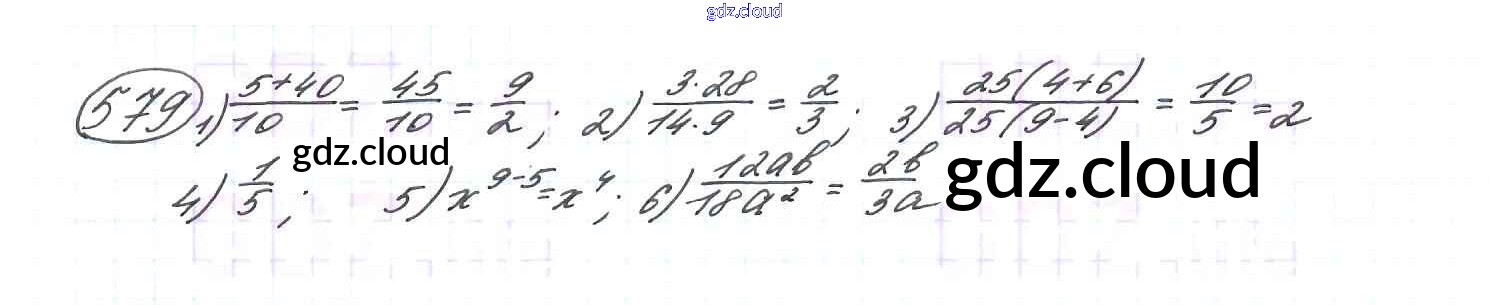 gdz.cloud
579 1) (5+40)/10 = 45/10 = 9/2; 2) (3·28)/(14·9) = 2/3; 3) 25(4+6)/25(9-4) = 10/5 = 2
gdz.cloud
4) 1/5; 5) x^(9-5) = x^4; 6) 12ab/18a² = 2b/3a gdz.cloud